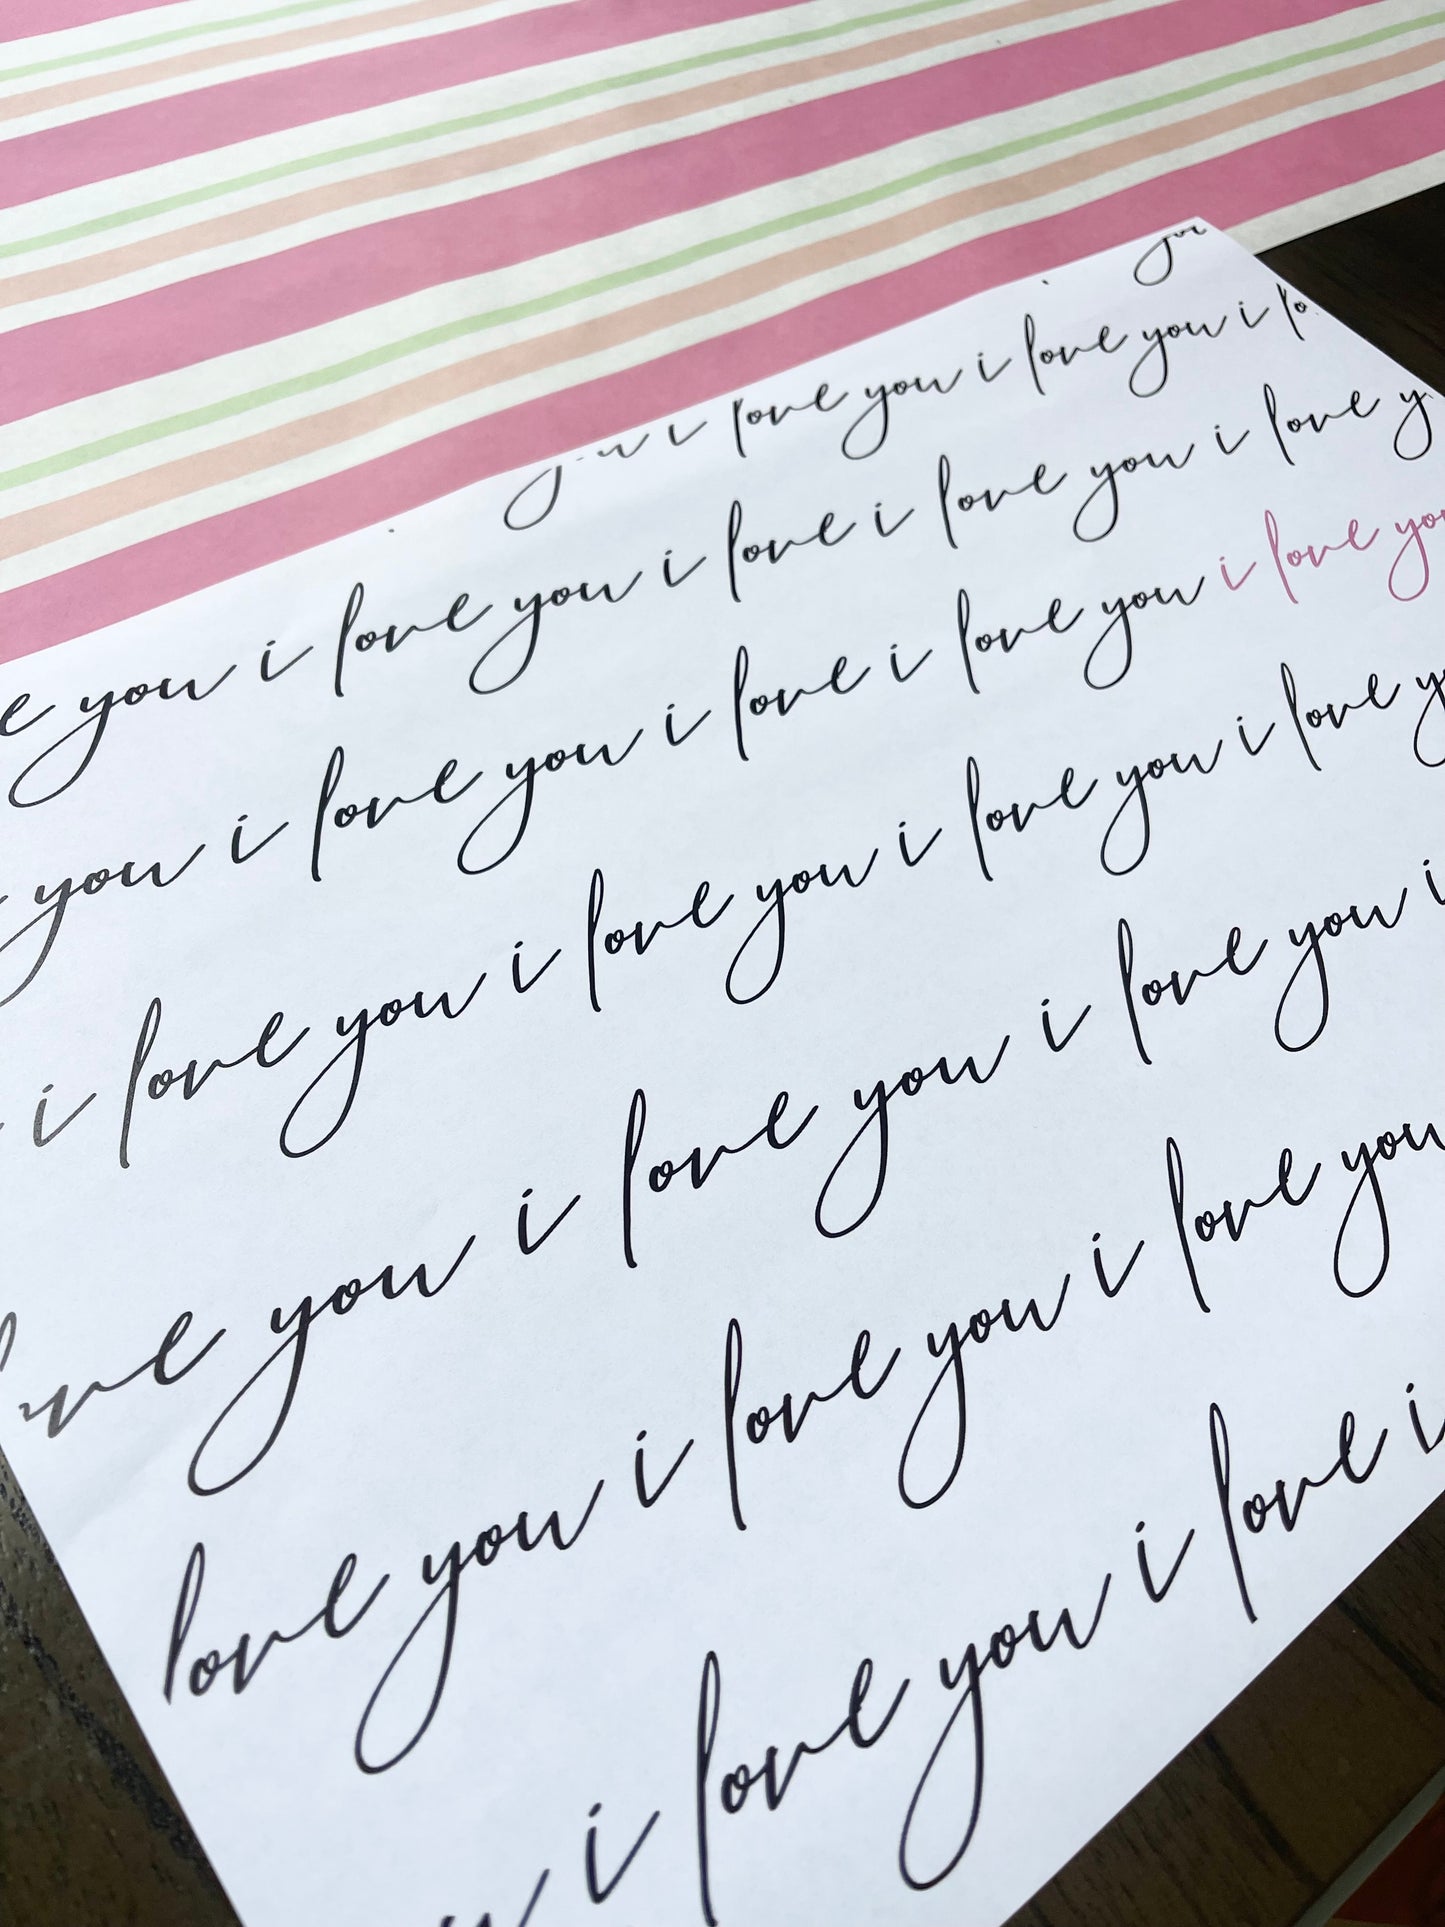 you
you i love you i love you i lo
e you i love you i love i love you i love y
you i love you i love i love you i love you
i love you i love you i love you i love y
ve you i love you i love you i
love you i love you i love you
u i love you i love i